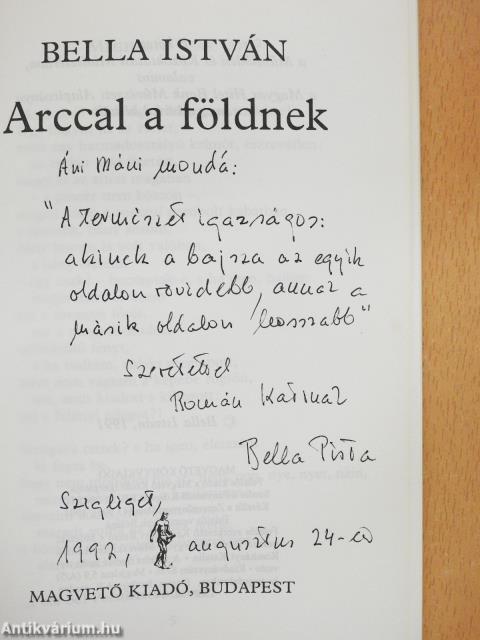 BELLA ISTVÁN
Arccal a földnek
Áni Máni mondá:
"A természet igazságos:
akinek a bajsza az egyik
oldalon rövidebb, annak a
másik oldalon hosszabb"
Szeretettel
Román Katinak
Bella Pista
Szigliget,
1992, augusztus 24-én
MAGVETŐ KIADÓ, BUDAPEST
Antikvárium.hu